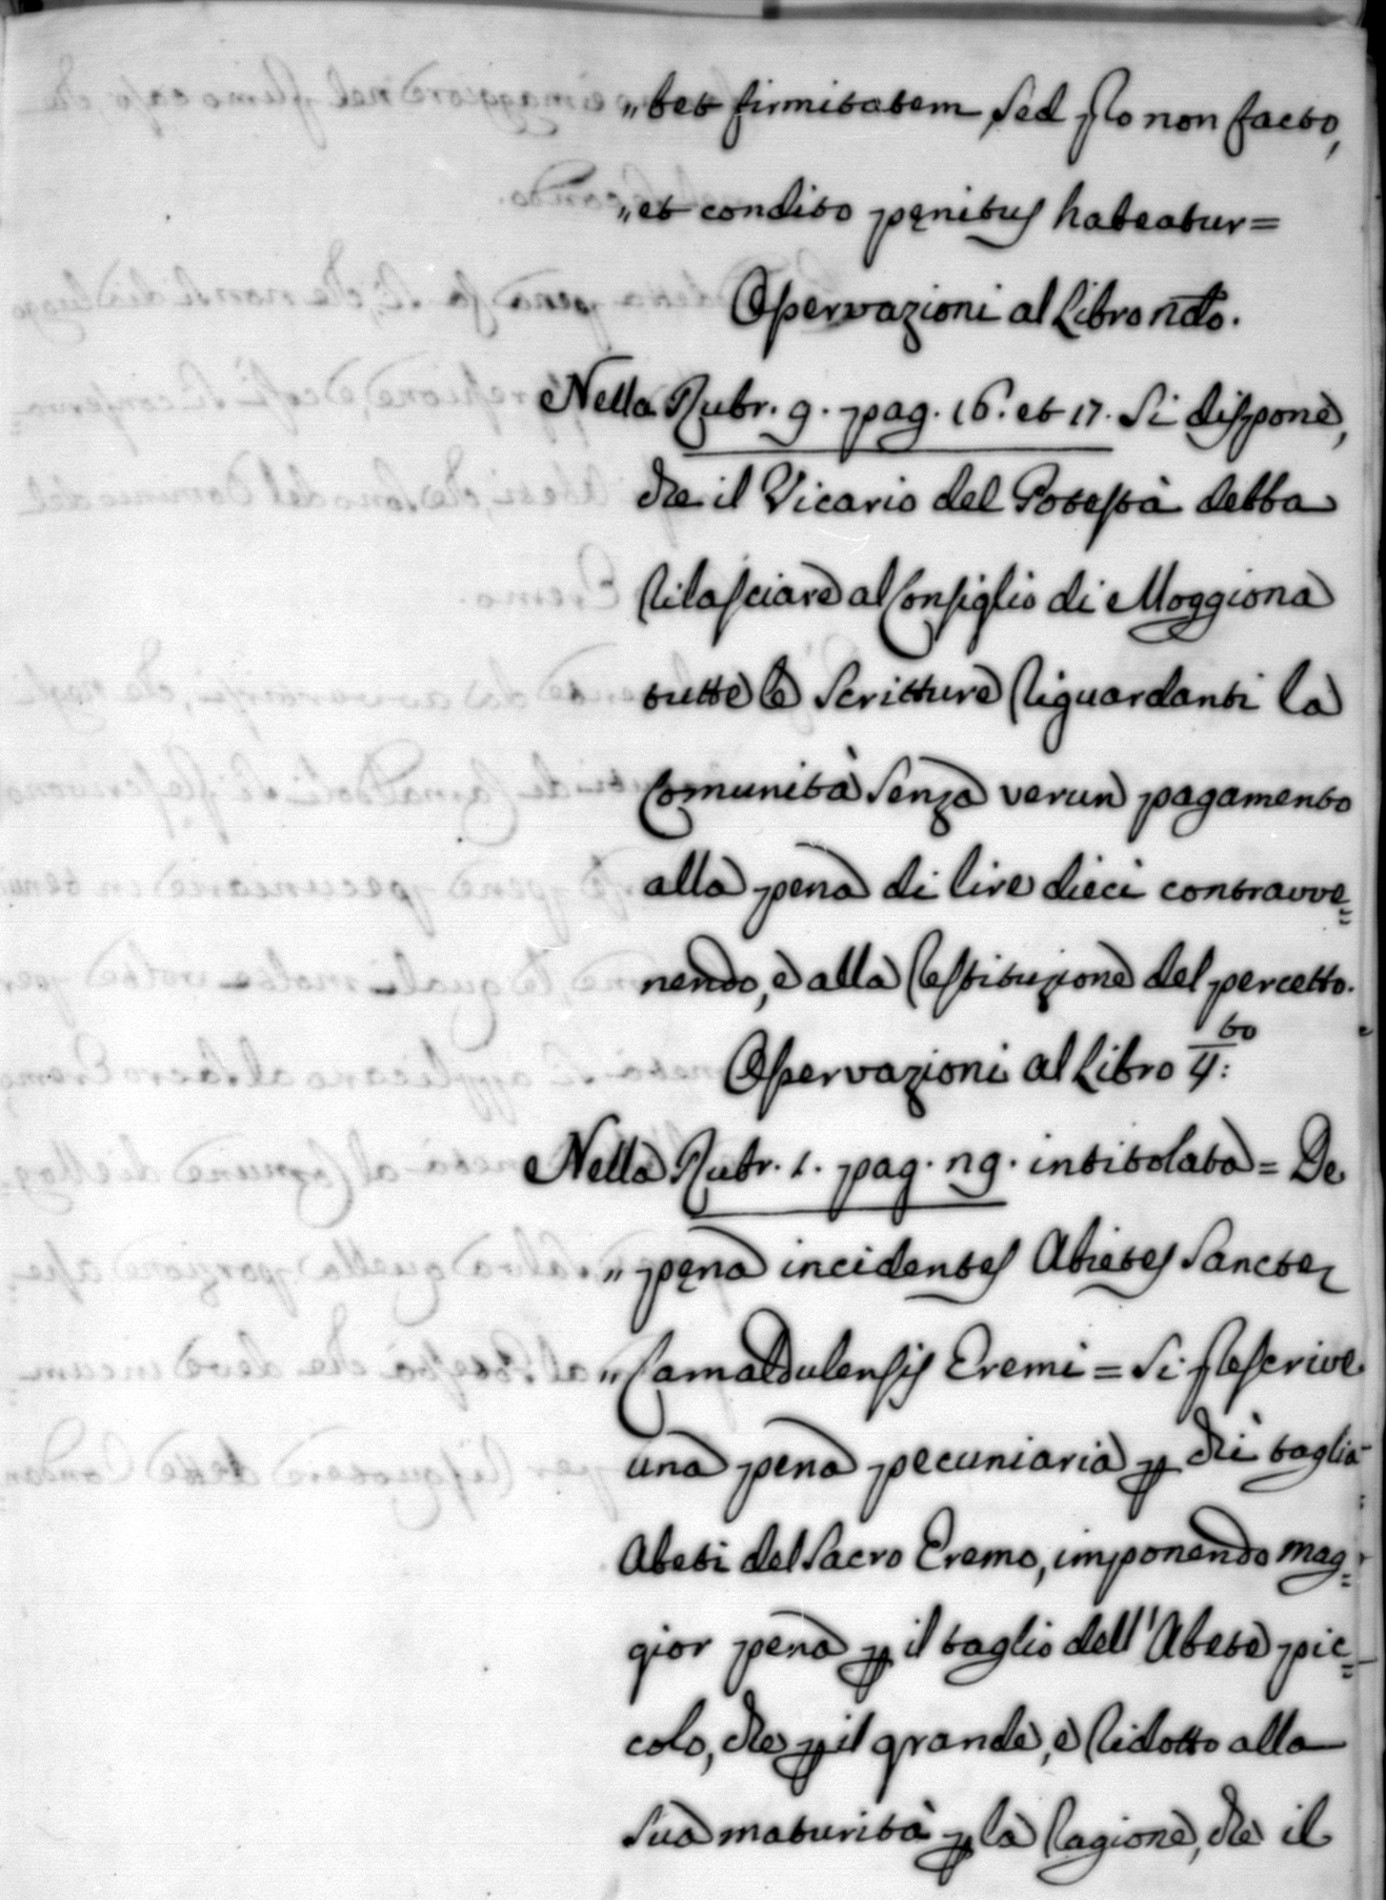 „bet firmitatem sed p̃to non facto,
„et condito pęnitus habeatur=
Osservazioni al Libro
Nella Rubr. 9. pag. 16. et 17. si dispone,
che il Vicario del Potestà debba
rilasciare al Consiglio di Moggiona
tutte le Scritture riguardanti la
Comunità senza verun pagamento
alla pena di lire dieci contravve=
nendo, e alla restituzione del percetto.
Osservazioni al Libro 4:to
Nella Rubr. 1. pag. intitolata= De
„pęna incidentes Abietes Sanctę
„Camaldulensis Eremi = si p̃scrive
una pena pecuniaria p chi taglia
Abeti del Sacro Eremo, imponendo mag=
gior pena p il taglio dell'Abete pic=
colo, che p il grande, e ridotto alla
sua maturità p la ragione, che il